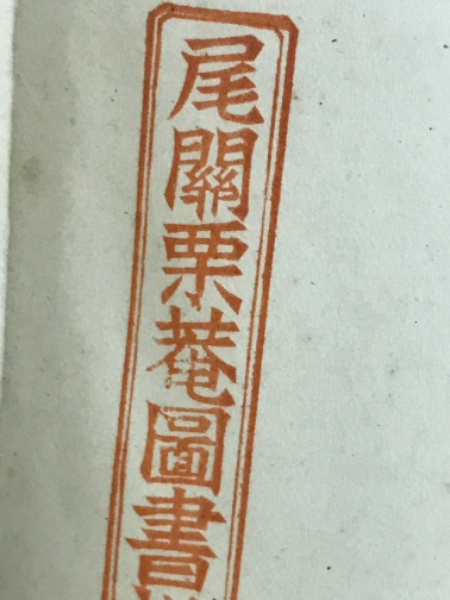 尾關栗菴圖書